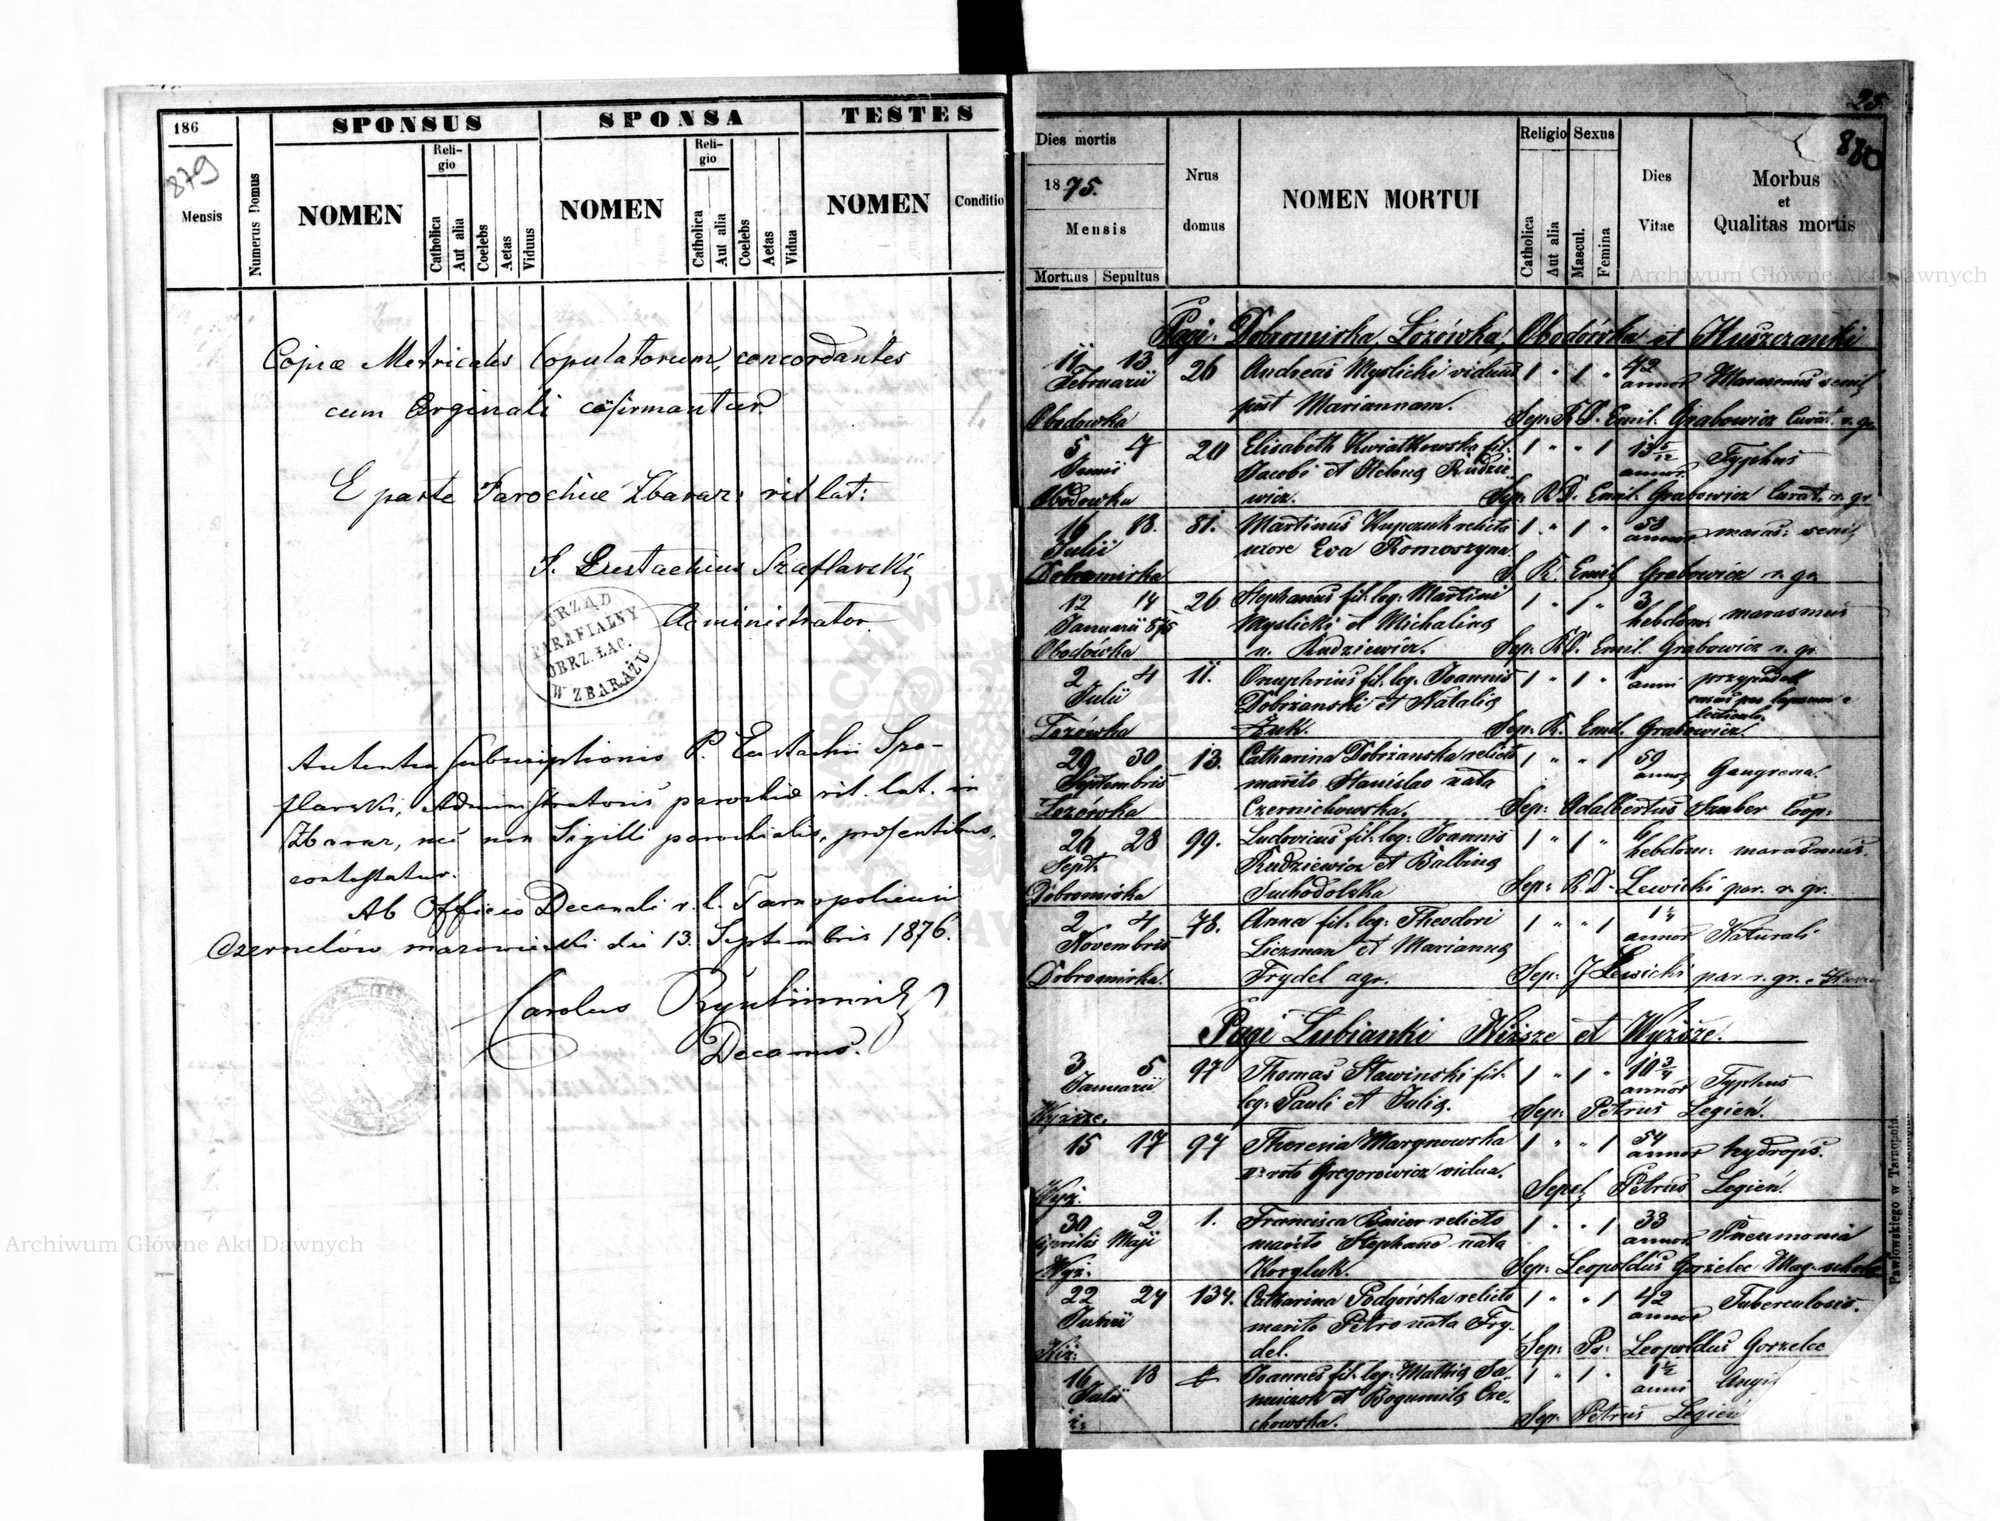 186
879
Mensis
Numerus Domus
SPONSUS
SPONSA
TESTES
NOMEN
Religio
Catholica
Aut alia
Coelebs
Aetas
Viduus
NOMEN
Religio
Catholica
Aut alia
Coelebs
Aetas
Vidua
NOMEN
Conditio
Copiæ Metricales Copulatorum, concordantes
cum Orginali cofirmantur.
E parte Parochiæ Zbaraz: rit lat:
J. Eustachius Szaflarski
Administrator
URZĄD
PARAFIALNY
OBRZ. ŁAC.
W ZBARAŻU
subscriptionis P. Eustachii Sza-
flarski, Administratoris parochiæ rit. lat. in
Zbaraz, nec non Sigilli parochialis, præsentibus,
contestatur.
Ab Officio Decanali r. l. Tarnopoliensi
Czernelów mazowiecki die 13. Septembris 1876.
Carolus
Decanus.
25.
880
Dies mortis
1875.
Mensis
Mortuus Sepultus
Nrus
domus
NOMEN MORTUI
Religio
Catholica
Aut alia
Sexus
Mascul.
Femina
Dies
Vitae
Morbus
et
Qualitas mortis
Pagi: Dobromirka, Lozówka, Obodówka et Kluszczanki
11 13 26 Andreas Myslicki viduus 1 " 1 " 42 Marasmus senil
Februarii post Mariannam. annor
Obodowka Sep: R. D. Emil. Grabowicz Curat. r. gr.
5 7 20 Elisabeth Kwiatkowska fil: 1 " " 1 13 5/12 Typhus
Junii Jacobi et Helena Rudzie annor
Obodowka wicz. Sep: R. D. Emil. Grabowicz Curat. r. gr.
16 18. 81. Martinus Kupczuk relicta 1 " 1 " 58 maras: senil
Julii uxore Eva Romoszyna annor
Dobromirka S. R. Emil Grabowicz r. gr.
12 14 26 Stephanus fil. leg. Martini 1 " 1 " 3 marasmus
Januarii 875 Myslicki et Michalina hebdom.
Obodówka n. Rudziewicz. Sep: R. D. Emil. Grabowicz r. gr.
2 4 11. Onuphrius fil. leg. Joannis 1 " 1 " anni przypadek
Julii Dobrzanski et Natalia
Lozówka Żuk. Sep: R. Emil. Grabowicz
29 30 13. Catharina Dobrzanska relicto 1 " " 1 59 Gangrena.
Septembris marito Stanislao nata annor
Lozówka Czernichowska. Sep: Adalbertus Szuber Coop:
26 28 99. Ludovicus fil. leg: Joannis 1 " 1 " 6 marasmus.
Sept. Rudziewicz et Balbina hebdom:
Dobromirka Suchodolska Sep: R. D. Lewicki par. r. gr.
2 4 78. Anna fil. leg: Theodori 1 " " 1 1 1/4 Naturali
Novembris Liczman et Marianna annor
Dobromirka. Frydel agr. Sep: J Lewicki par. r. gr.
Pagi Lubianki Niższe et Wyższe.
3 5 97 Thomas Stawinski fil. 1 " 1 " 10 3/4 Typhus
Januarii leg: Pauli et Julia. annor
Wyższe. Sep: Petrus Legień.
15 17 97 Theresia Marynowska 1 " " 1 54 hydrops.
voto Gregorowicz vidua. annor
Wyż. Sepel Petrus Legień.
30 2 1. Francisca Baier relicto 1 " " 1 33 Pneumonia
Aprilis Maji marito Stephano nata annor
Wyż. Korgluk. Sep: Leopoldus Gorzelec Mag. schole
22 24 134. Catharina Podgórska relicto 1 " " 1 42 Tuberculosis.
Junii marito Petro nata Fry- annor
Niż: del. Sep: Leopoldus Gorzelec
16 18 Joannes fil. leg. Mathia Sa- 1 " 1 " 1 1/2
Julii et Bogumila Cze- anni
chowska. Sep: Petrus Legień
Pawłowskiego w Tarnopolu
Archiwum Główne Akt Dawnych
Archiwum Główne Akt Dawnych